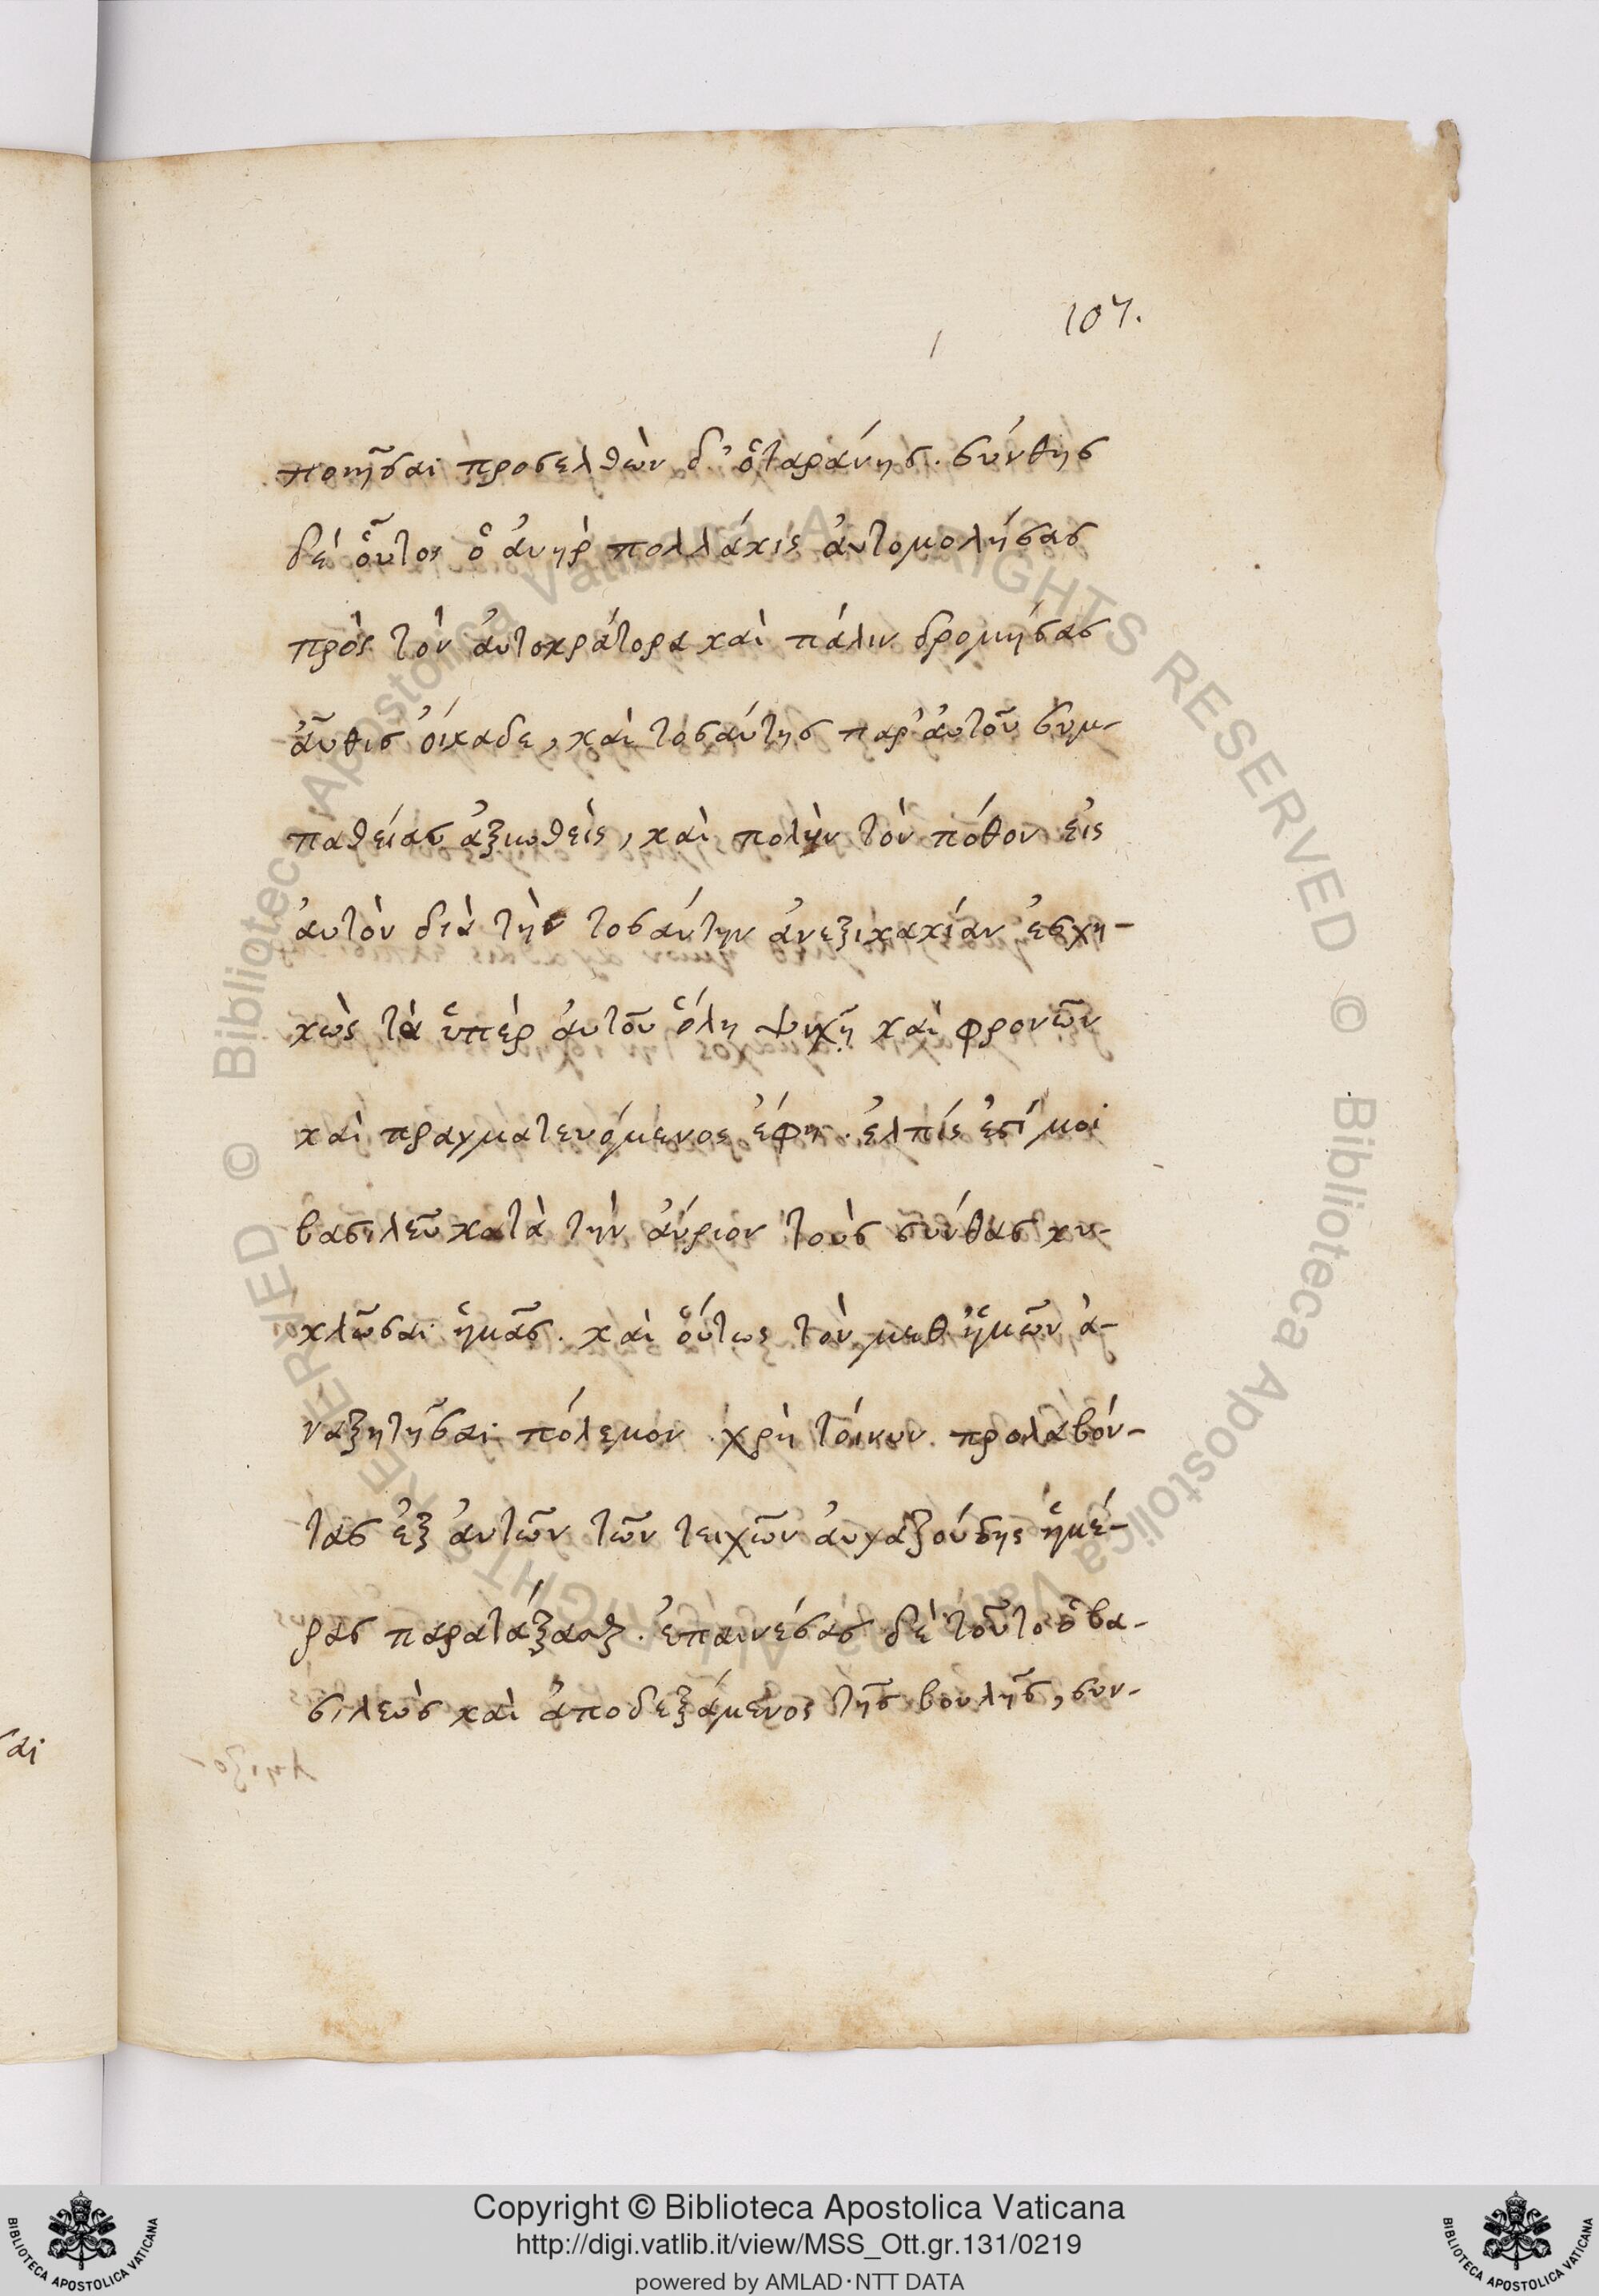 107.
ποιῆσαι προσελθὼν δ' ὁταράνης. σύνθης
δέ οὗτος ὁ ἀνὴρ πολλάκις ἀυτομολήσας
πρὸς τὸν ἀυτοκράτορα καὶ πάλιν δρομήσας
ἀῦθις ὀίκαδε, καὶ τοσάυτης παρ' ἀυτοῦ συμ-
παθείας ἀξιωθεὶς, καὶ πολὺν τὸν πόθον εἰς
ἀυτὸν διὰ τὴν τοσάυτην ἀνεξικακίαν ἐσχη-
κὼς τὰ ὑπὲρ ἀυτοῦ ὅλη ψυχῆ καὶ φρονῶν
καὶ πραγματευόμενος ἔφη. ἐλπίς ἐστί μοι
βασιλεῦ κατὰ τὴν ἀύριον τοὺς σύνθας κυ-
κλῶσαι ἡμᾶς. καὶ ὅυτως τὸν μεθ' ἡμῶν ἀ-
ναζητῆσαι πόλεμον. χρὴ τοίνυν προλαβόν-
τας ἐξ ἀυτῶν τῶν τειχῶν ἀυγαζούσης ἡμέ-
ρας παρατάξασθαι. ἐπαινέσας δὲ τοῦτο ὁ βα-
σιλεὺς καὶ ἀποδεξάμενος τῆς βουλῆς, συν-
σαι
Copyright © Biblioteca Apostolica Vaticana
http://digi.vatlib.it/view/MSS_Ott.gr.131/0219
powered by AMLAD·NTT DATA
BIBLIOTECA APOSTOLICA VATICANA
BIBLIOTECA APOSTOLICA VATICANA
© Biblioteca Apostolica Vaticana ALL RIGHTS RESERVED © Biblioteca Apostolica Vaticana ALL RIGHTS RESERVED